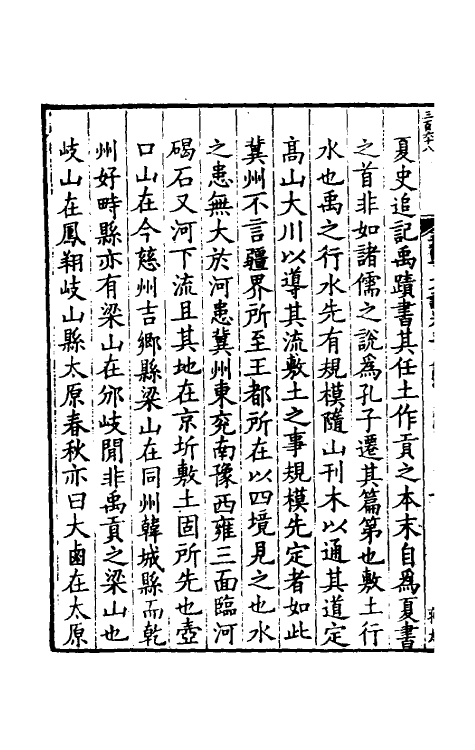 三百六十八
夏史追記禹蹟書其任土作貢之本末自爲夏書
之首非如諸儒之説爲孔子遷其篇第也敷土行
水也禹之行水先有規模隨山刊木以通其道定
髙山大川以導其流敷土之事規模先定者如此
冀州不言疆界所至王都所在以四境見之也水
之患無大於河患冀州東兖南豫西雍三面臨河
碣石又河下流且其地在京圻敷土固所先也壺
口山在今慈州吉鄉縣梁山在同州韓城縣而乾
州好畤縣亦有梁山在邠岐閒非禹貢之梁山也
岐山在鳳翔岐山縣太原春秋亦曰大鹵在太原